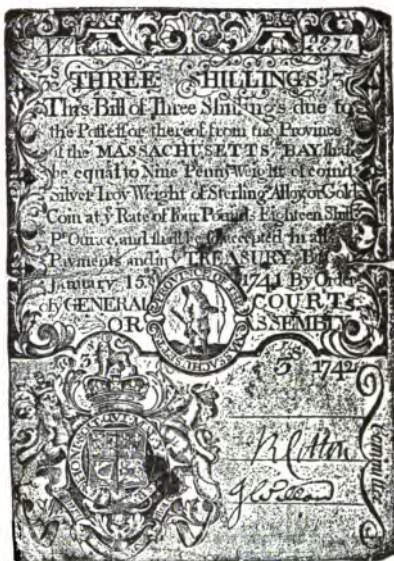 No 2270
THREE SHILLINGS 3s
This Bill of Three Shillings due to
the Possessor thereof from the Province
of the MASSACHUSETTS BAY shall
be equal to Nine Penny Weight of coind
Silver Troy Weight of Sterling Alloy or Gold
Coin at ye Rate of Four Pounds Eighteen Shills
Pr Ounce, and shall be so accepted in all
Payments and in ye TREASURY. Boston
January 15. 1741 By Order
of ye GENERAL COURT
OR ASSEMBLY
PROVINCE OF THE MASSACHUSETTS
3s 1742
HONI SOIT QUI MAL
Committee